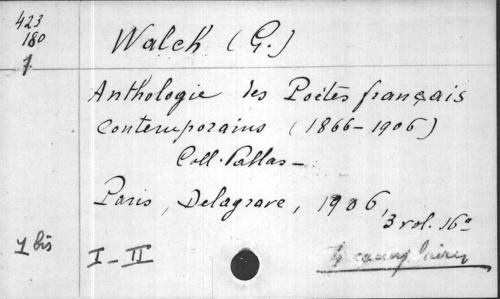 423
180
1
Walch (G.)
Anthologie des Poètes français
contemporains (1866-1906)
Coll. Pallas -
Paris, Delagrave, 1906,
3 vol. 16°
1 bis
I - II